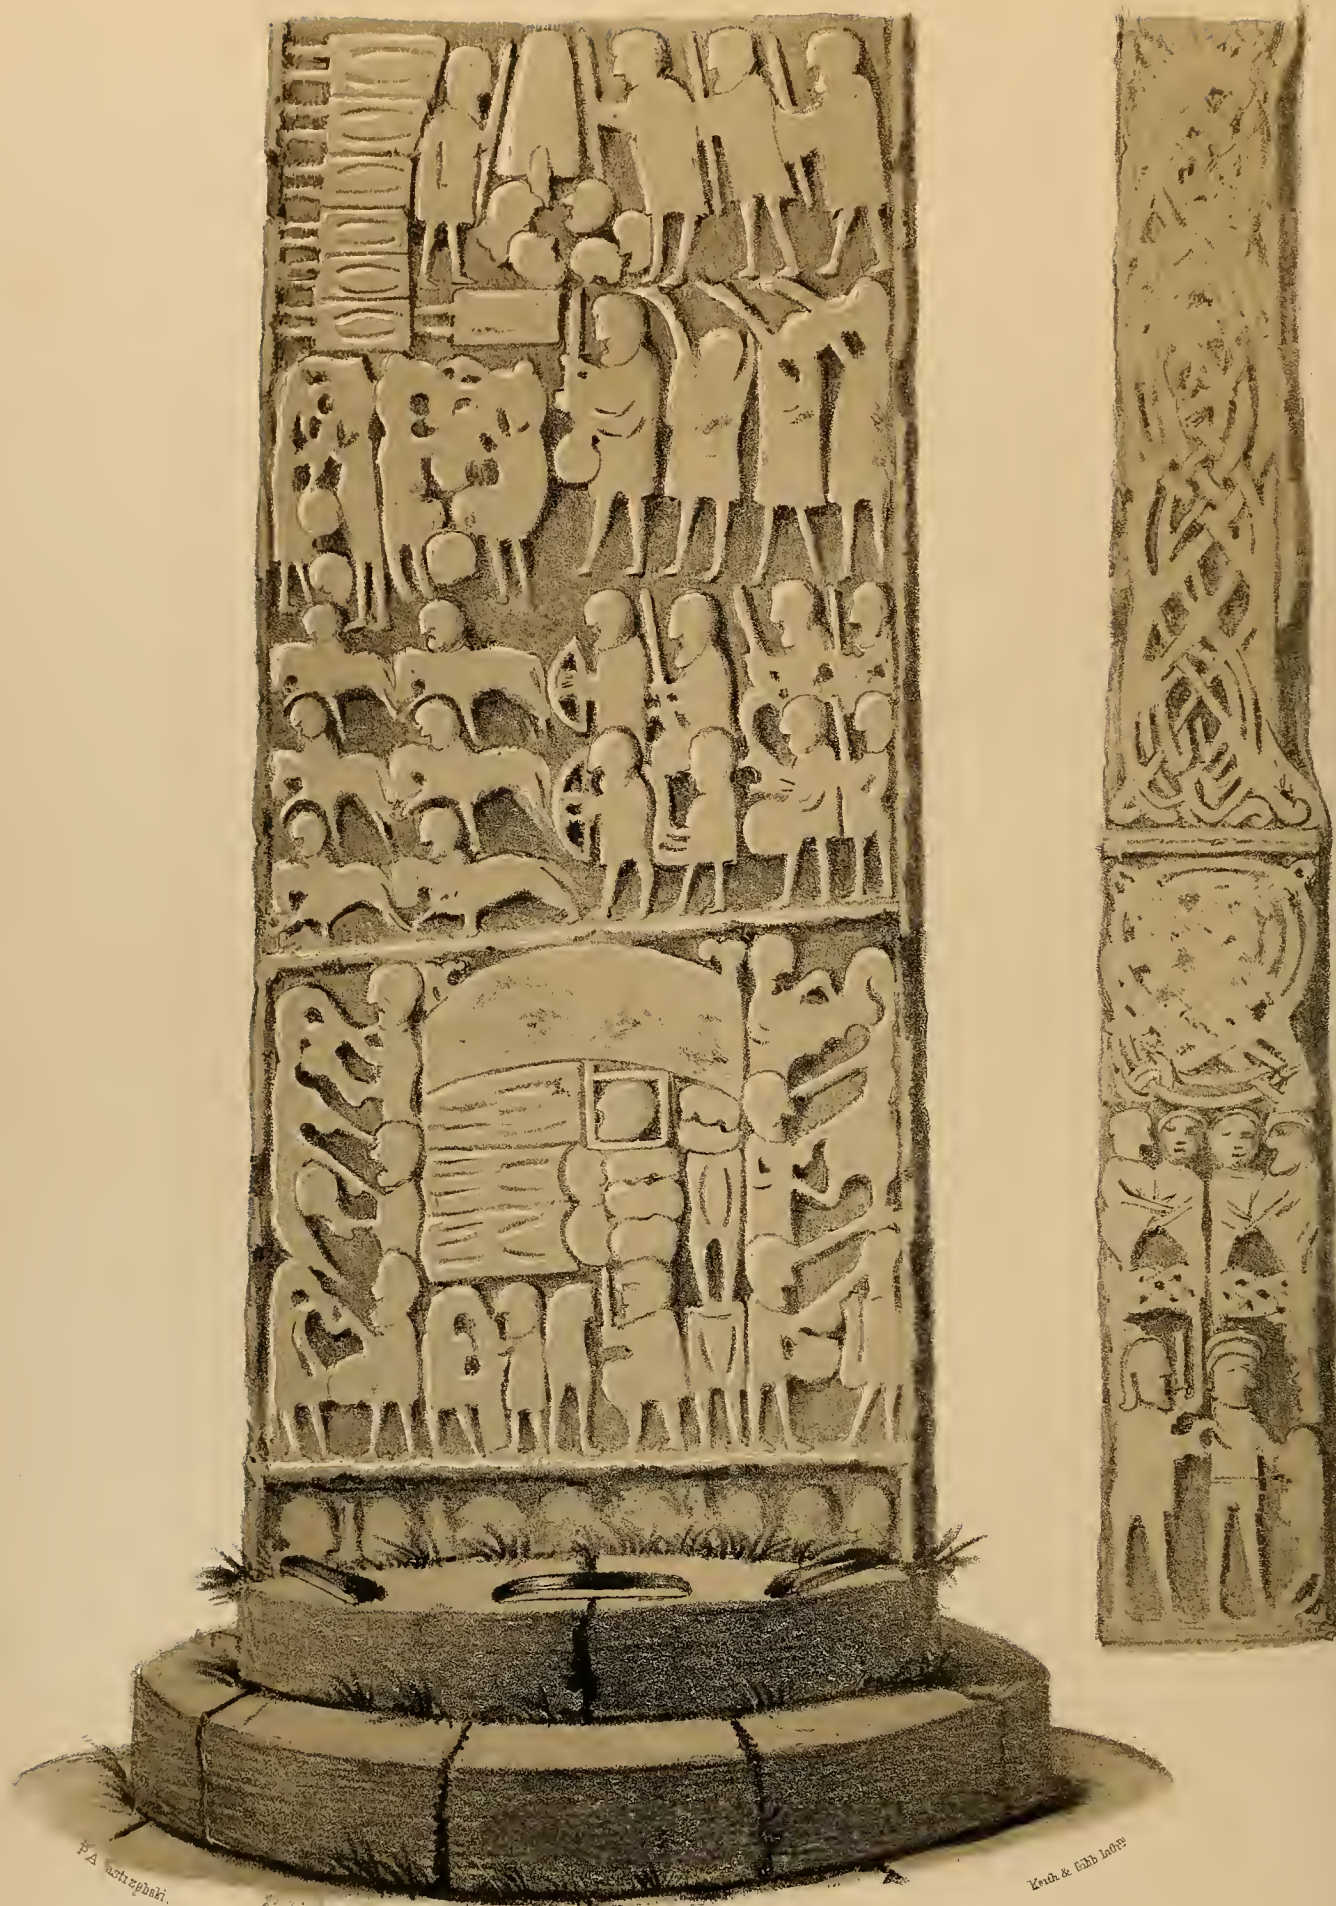 P. A. Jastrzębski.
Keith & Gibb Lithrs